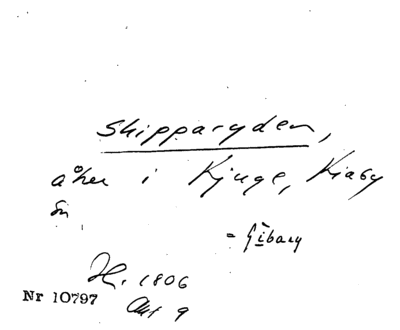 Skipparyden,
åker i Kjuge, Kiaby
sn
H. 1806
Nr 10797
Akt 9